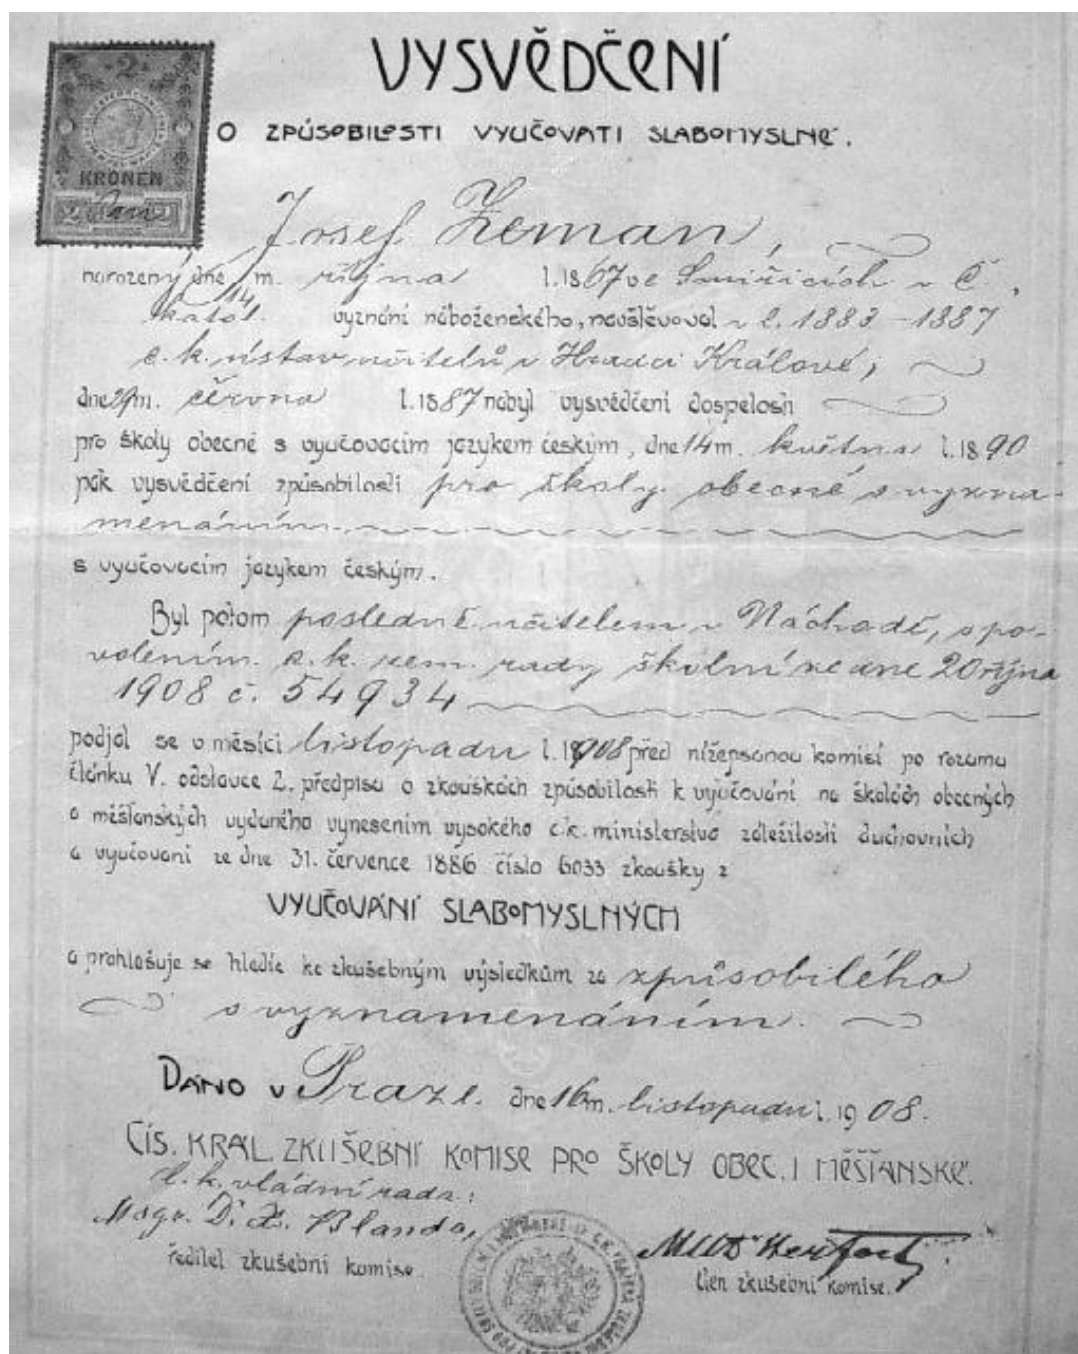 VYSVĚDČENÍ
O ZPŮSOBILOSTI VYUČOVATI SLABOMYSLNÉ.
2
KRONEN
Josef Zeman,
narozený dne 14 m. října l. 1867 ve Smiřicích v Č.,
katol. vyznání náboženského, navštěvoval v l. 1883 – 1887
c. k. ústav učitelů v Hradci Králové,
dne 29 m. června l. 1887 nabyl vysvědčení dospělosti
pro školy obecné s vyučovacím jazykem českým, dne 14 m. května l. 1890
pak vysvědčení způsobilosti pro školy obecné s vyzna-
menáním
s vyučovacím jazykem českým.
Byl potom posledně učitelem v Náchodě, s po-
volením c. k. zem. rady školní ze dne 20 října
1908 č. 54934
podjal se v měsíci listopadu l. 1908 před nížepsanou komisí po rozumu
článku V. odstavce 2. předpisu o zkouškách způsobilosti k vyučování na školách obecných
a měšťanských vydaného vynesením vysokého c. k. ministerstva záležitostí duchovních
a vyučování ze dne 31. července 1886 číslo 6033 zkoušky z
VYUČOVÁNÍ SLABOMYSLNÝCH
a prohlašuje se hledíc ke zkušebným výsledkům za způsobilého
s vyznamenáním.
DÁNO V Praze. dne 16 m. listopadu l. 1908.
CÍS. KRÁL. ZKUŠEBNÍ KOMISE PRO ŠKOLY OBEC. I MĚŠŤANSKÉ.
C. k. vládní rada:
Blanda,
ředitel zkušební komise.
člen zkušební komise.